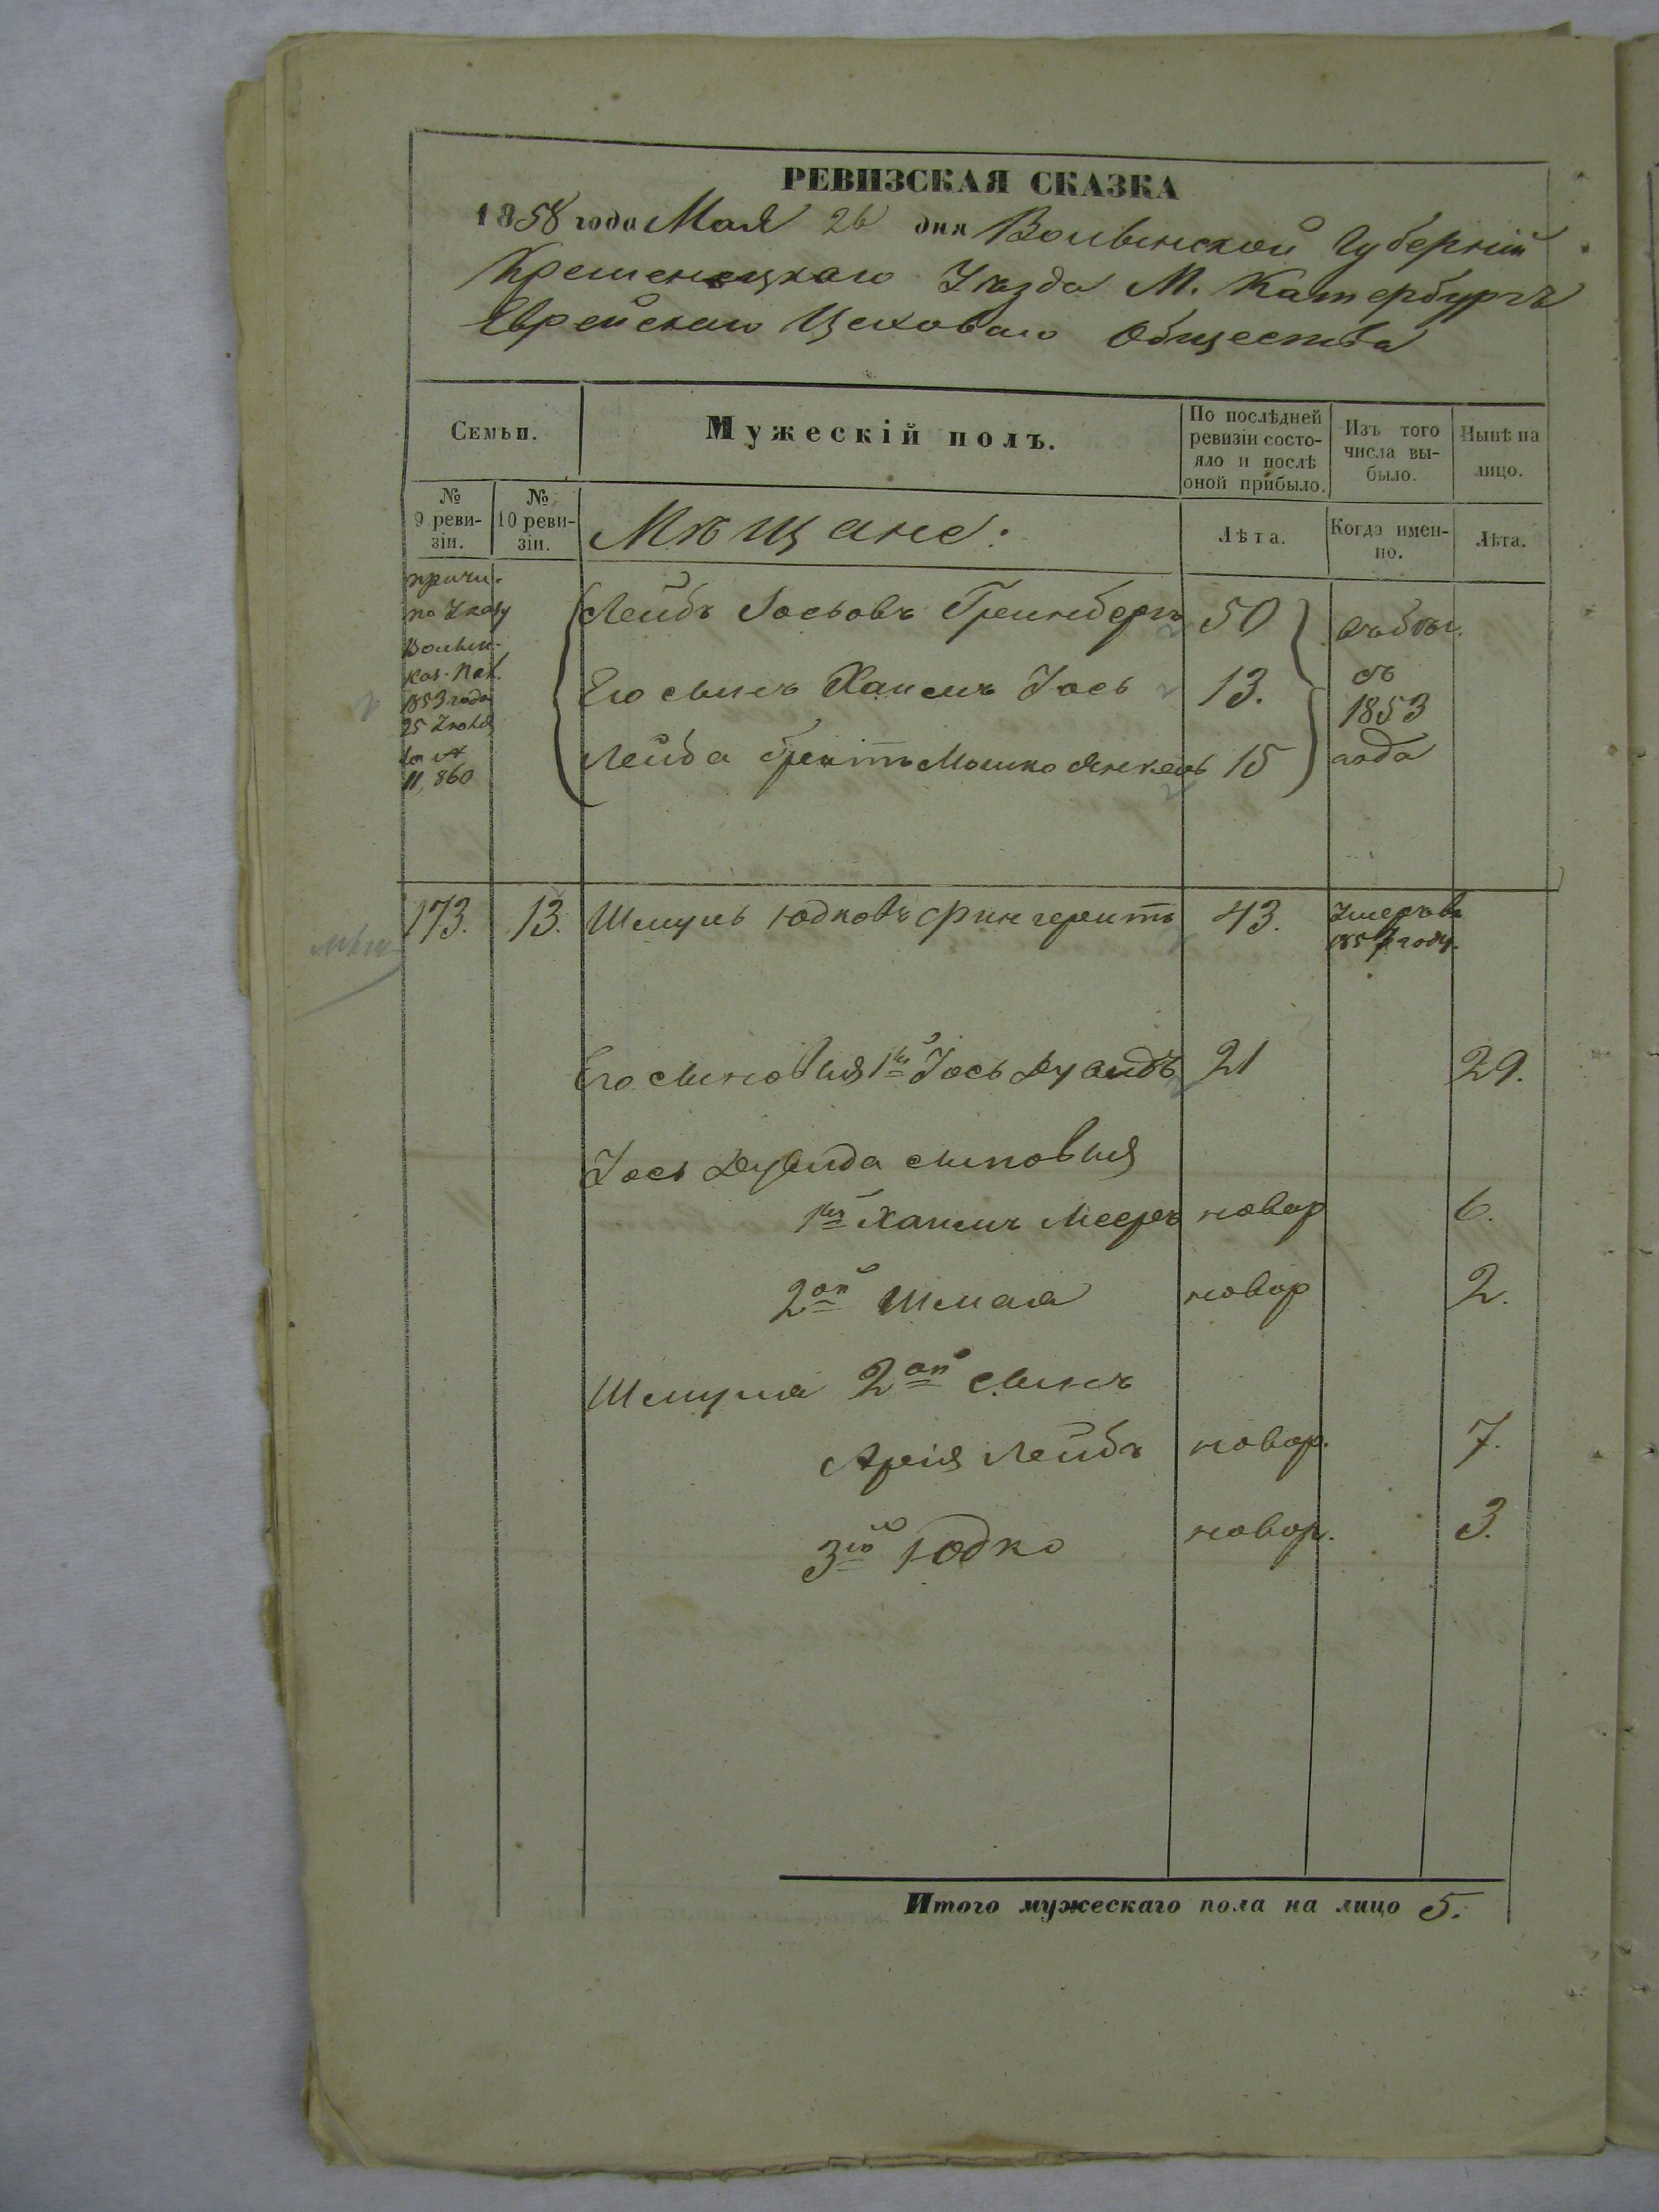 РЕВИЗСКАЯ СКАЗКА
1858 года Мая 26 дня Волынской Губерніи
Кременецкаго Уѣзда М. Катербургъ
Еврейскаго Цеховаго Общества
Семьи.
Мужескій полъ.
По послѣдней ревизіи состояло и послѣ оной прибыло.
Изъ того числа выбыло.
Нынѣ на лицо.
№ 9 ревизіи.
№ 10 ревизіи.
Мѣщане:
Лѣта.
Когда именно.
Лѣта.
причи.
по Указу
Волын.
Каз. Пал.
1853 года
25
за №
11,860
Лейбъ Іосьовъ Гринбергъ 50
Его сынъ Хаимъ Іось 13.
Лейба братъ Мошко Янкель 15
съ
1853
года
173. 13. Шмуль Юдковъ Фингерутъ 43. Умеръ въ
1857 году.
Его сыновья 1й Іось Дувидъ 21 29.
Іось Дувида сыновья
1й Хаимъ Мееръ новор 6.
2ой Шмая новор 2.
Шмуля 2ой сынъ
Арія Лейбъ новор. 7.
3й Юдко новор. 3.
Итого мужескаго пола на лицо 5.